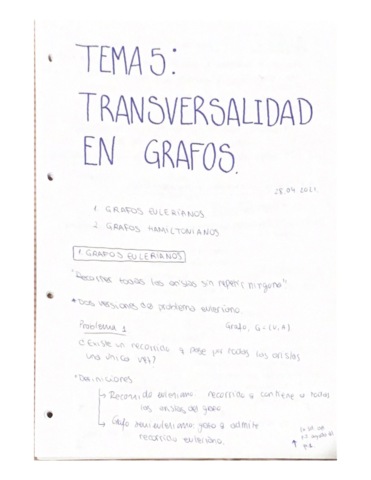 TEMA 5:
TRANSVERSALIDAD
EN GRAFOS.
28.04.2021
1. GRAFOS EULERIANOS
2. GRAFOS HAMILTONIANOS
1. GRAFOS EULERIANOS
"Recorrer todas las aristas sin repetir ninguna"
* Dos versiones del problema euleriano.
Problema 1 Grafo, G=(V,A)
¿Existe un recorrido q pase por todas las aristas
una única vez?
* Definiciones
Recorrido euleriano: recorrido q contiene a todas
las aristas del grafo
Grafo semieuleriano: grafo q admite
recorrido euleriano.